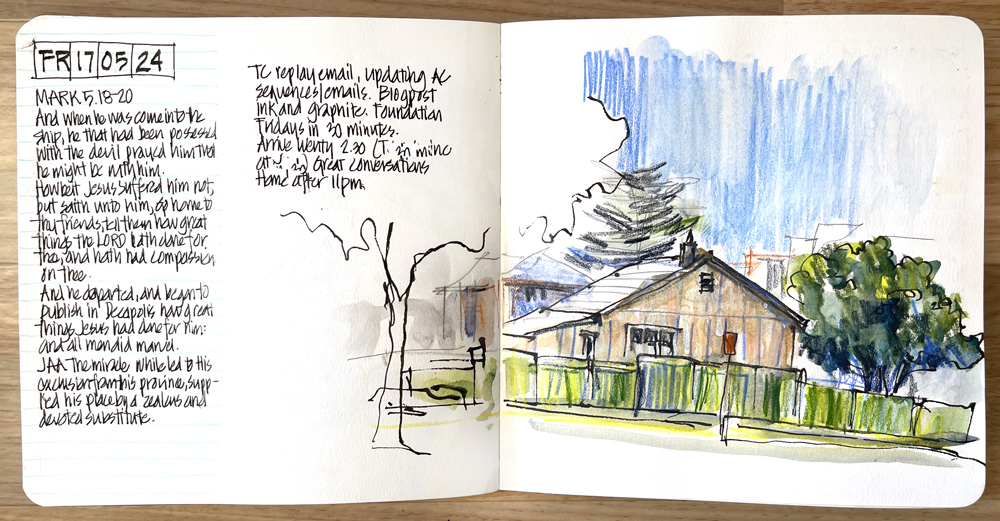 FR 17 05 24
MARK 5.18-20
And when he was come into the
ship, he that had been possessed
with the devil prayed him that
he might be with him.
Howbeit Jesus suffered him not,
but saith unto him, Go home to
thy friends, tell them how great
things the LORD hath done for
thee, and hath had compassion
on thee.
And he departed, and began to
publish in Decapolis, how great
things Jesus had done for him:
and all men did marvel.
JAA The miracle while led to his
exclusion from this province, supp-
lied his place by a zealous and
devoted substitute.
TC replay email, updating AC
sequences/emails. Blogpost
ink and graphite. Foundation
Fridays in 30 minutes.
Arrive Wenty 2.30 (T.
Great conversations
Home after 11pm.